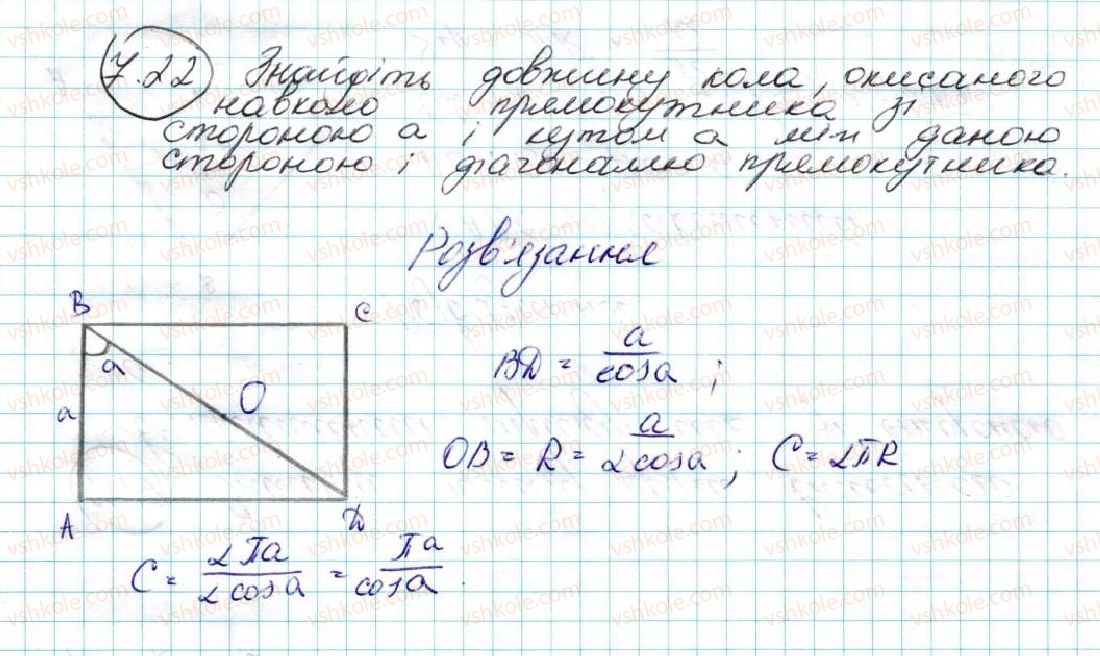 7.22 Знайдіть довжину кола, описаного
навколо прямокутника зі
стороною a і кутом a між даною
стороною і діагоналлю прямокутника.
Розв'язання
B C
a
a O
A D
BD = a/cos a ;
OB = R = a/2cos a ; C = 2πR
C = 2πa/2cos a = πa/cos a .